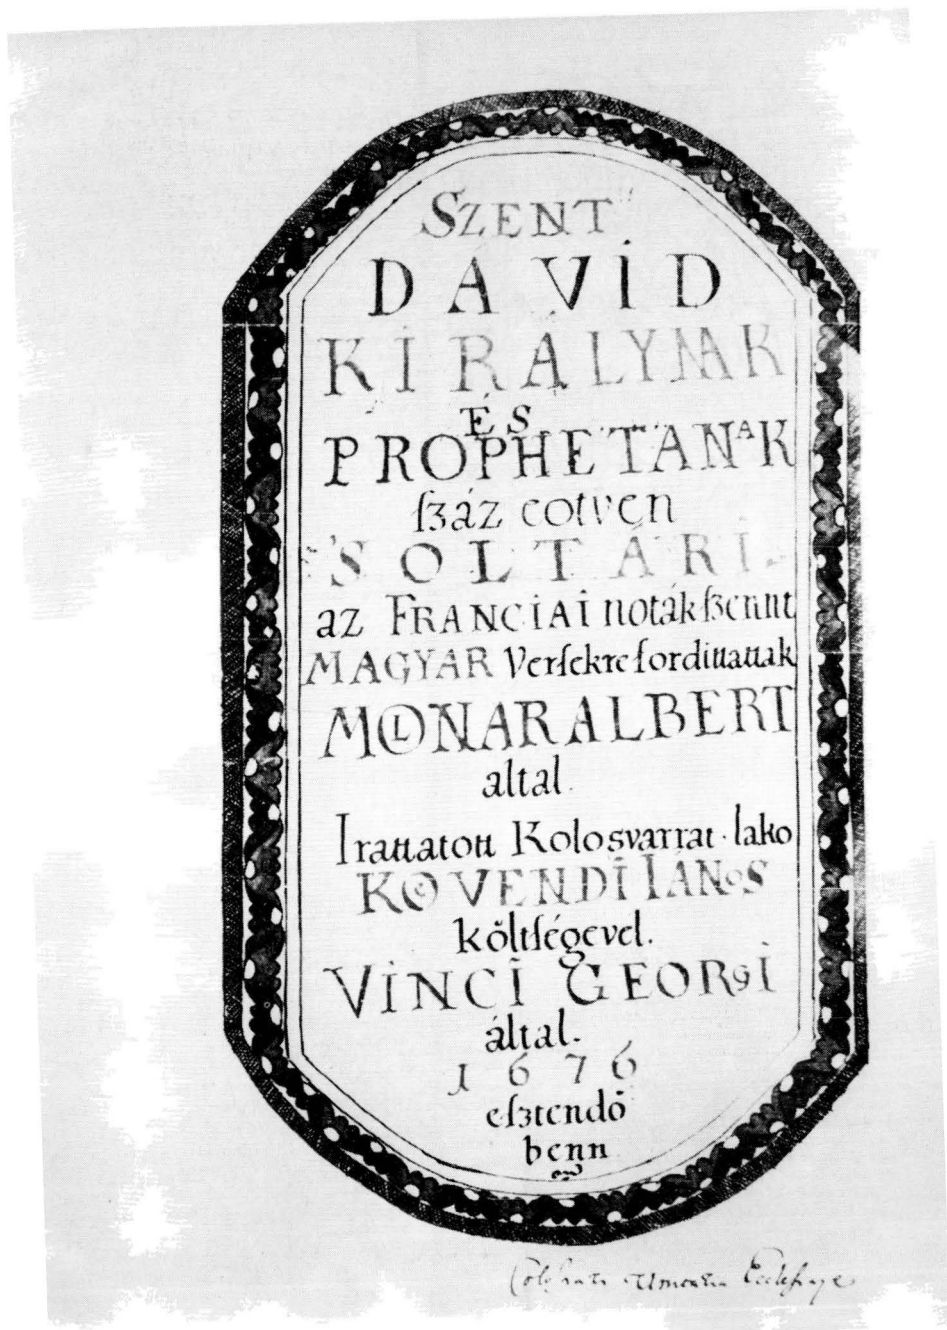 SZENT
DAVİD
KIRÁLYNAK
ÉS
PROPHETANAK
ſzáz eotven
SOLTÁRI
az FRANCİAİ noták ſzennt
MAGYAR Verſekre fordittattak
MOLNAR ALBERT
altal.
Irattatott Kolosvarrat lako
KÖVENDİ IÁNOS
kőltſégevel.
VİNCİ GEORGİ
által.
1676
eſztendő
benn